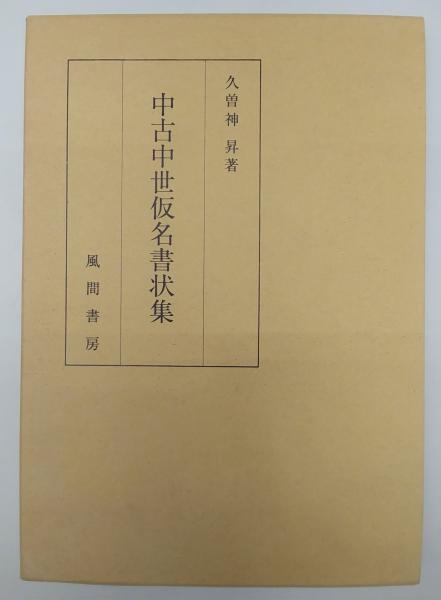 久曽神 昇著
中古中世仮名書状集
風間書房